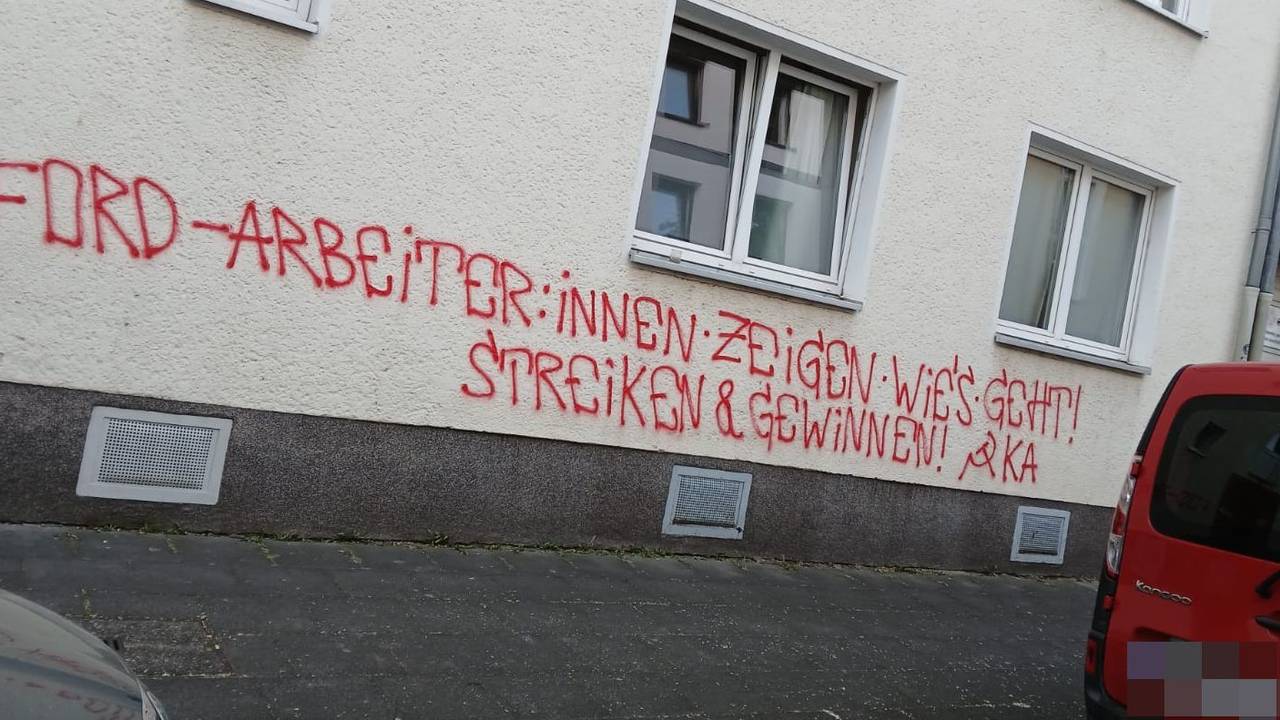 FORD-ARBEiTER:iNNEN·ZEiGEN·WiE'S·GEHT!
STREiKEN & GEWiNNEN! ☭KA
Kangoo